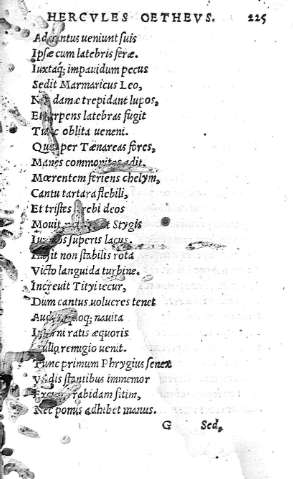 HERCVLES OETHEVS. 225
Ad cantus ueniunt suis
Ipsæ cum latebris feræ.
Iuxtaq; impauidum pecus
Sedit Marmaricus Leo,
Nec damæ trepidant lupos,
Et serpens latebras fugit
Tunc oblita ueneni.
Quin per Tænareas fores,
Manes commouites adit.
Mœrentem feriens chelym,
Cantu tartara flebili,
Et tristes Erebi deos
Mouit Stygis
superis lacus.
non stabilis rota
Victo languida turbine.
Increuit Tityi iecur,
Dum cantus uolucres tenet
nauita
ratis æquoris
remigio uenit.
Tunc primum Phrygius senex
Vndis stantibus immemor
rabidam sitim,
Nec pomis adhibet manus.
G Sed,